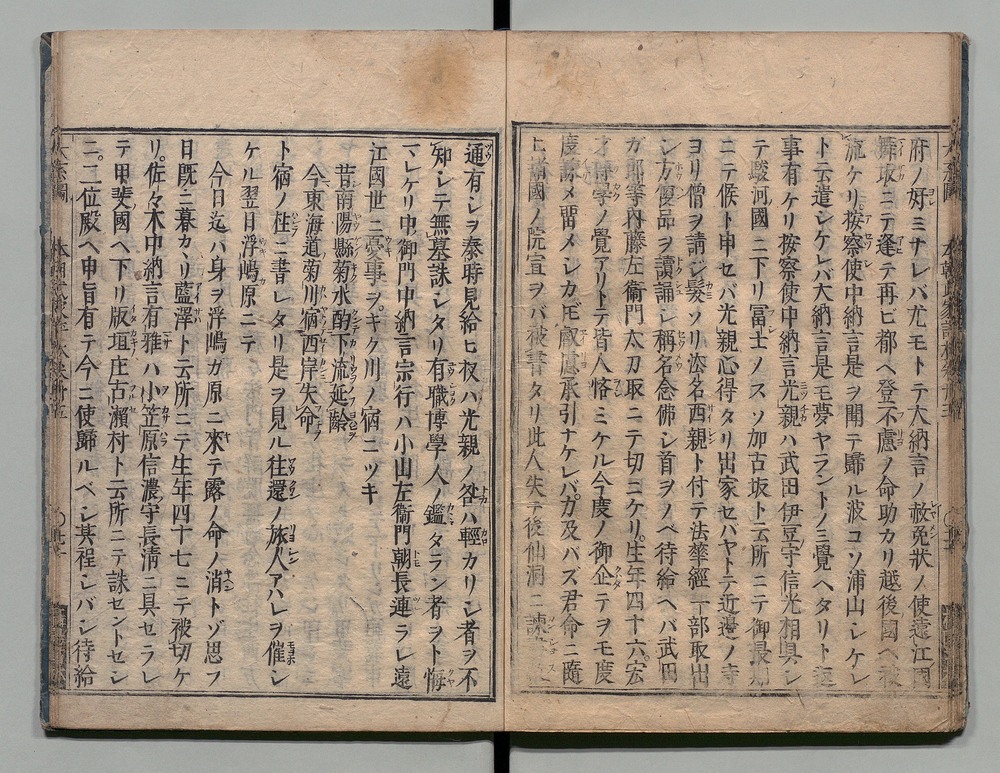 府ノ好ミナレバ尤モトテ大納言ノ赦免狀ノ使遠江國
舞坂ニテ逢テ再ビ都ヘ登不慮ノ命助カリ越後國ヘ被
流ケリ按察使中納言是ヲ聞テ歸ル波コソ浦山シケレ
ト云遣シケレバ大納言是モ夢ヤラントノミ覺ヘタリト
事有ケリ按察使中納言光親ハ武田伊豆守信光相具シ
テ駿河國ニ下リ冨士ノスソ加古坂ト云所ニテ御最
ニテ候ト申セバ光親心得タリ出家セバヤトテ近邊ノ寺
ヨリ僧ヲ請ジ髮ソリ法名西親ト付テ法華經一部取出
シ方便品ヲ讀誦シ稱名念佛シ首ヲノベ待給ヘバ武田
ガ郎等内藤左衞門太刀取ニテ切ニケリ生年四十六宏
才博學ノ覺アリトテ皆人惜ミケル今度ノ御企テヲモ度
度諫メ畱メシカモ叡慮承引ナケレバ力及バズ君命ニ隨
上諸國ノ院宣ヲバ被書タリ此人失テ後仙洞ニ諫
通有シヲ泰時見給ヒ扨ハ光親ノ咎ハ輕カリシ者ヲ不
知シテ無墓誅シタリ有職博學人ノ鑑タラン者ヲト悔
マレケリ中御門中納言宗行ハ小山左衞門朝長連ラレ遠
江國世ニ憂事ヲキク川ノ宿ニツキ
昔南陽縣菊水酌下流延齡
今東海道菊川宿西岸失命
ト宿ノ柱ニ書レタリ是ヲ見ル往還ノ旅人アハレヲ催シ
ケル翌日浮嶋原ニテ
今日迄ハ身ヲ浮嶋ガ原ニ來テ露ノ命ノ消トゾ思フ
日既ニ暮カヽリ藍澤ト云所ニテ生年四十七ニテ被切ケ
リ佐々木中納言有雅ハ小笠原信濃守長淸ニ具セラレ
テ甲斐國ヘ下リ版垣庄古瀬村ト云所ニテ誅セントセシ
ニ二位殿ヘ申旨有テ今ニ使歸ルベシ其程シバシ待給